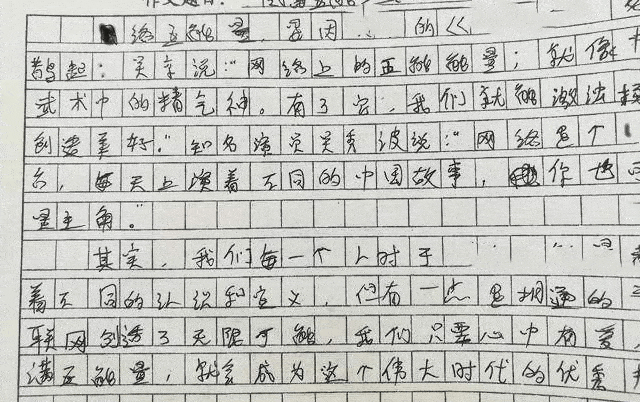 作文题目：
络正能量，是因 的
鼓起：吴京说："网络上的正能能量；就像
武术中的精气神。有了它，我们就能激浊
创造美好。"知名演员吴秀波说："网络是个
台，每天上演着不同的中国故事，你也
是主角。"
其实，我们每一个人对于
着不同的认识和定义，但有一点是相通的
联网创造了无限可能，我们只要心中有爱，
满正能量，就会成为这个伟大时代的优秀